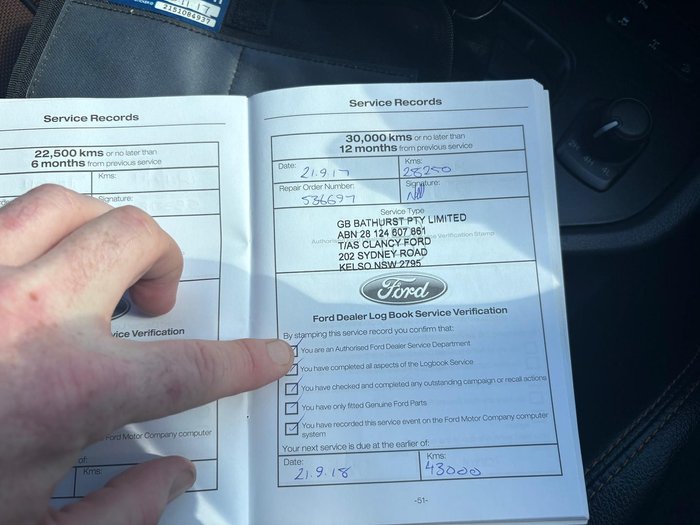 11 17
2151084937
Service Records
22,500 kms or no later than
6 months from previous service
Kms:
Signature:
vice Verification
Ford Motor Company computer
of:
Kms:
Service Records
30,000 kms or no later than
12 months from previous service
Date: 21.9.17
Kms: 28250
Repair Order Number: 536697
Signature:
Service Type
GB BATHURST PTY LIMITED
ABN 28 124 607 861
T/AS CLANCY FORD
202 SYDNEY ROAD
KELSO NSW 2795
Ford
Ford Dealer Log Book Service Verification
By stamping this service record you confirm that:
You are an Authorised Ford Dealer Service Department
You have completed all aspects of the Logbook Service
You have checked and completed any outstanding campaign or recall actions
You have only fitted Genuine Ford Parts
You have recorded this service event on the Ford Motor Company computer
system
Your next service is due at the earlier of:
Date: 21.9.18
Kms: 43000
-51-
4H
4L